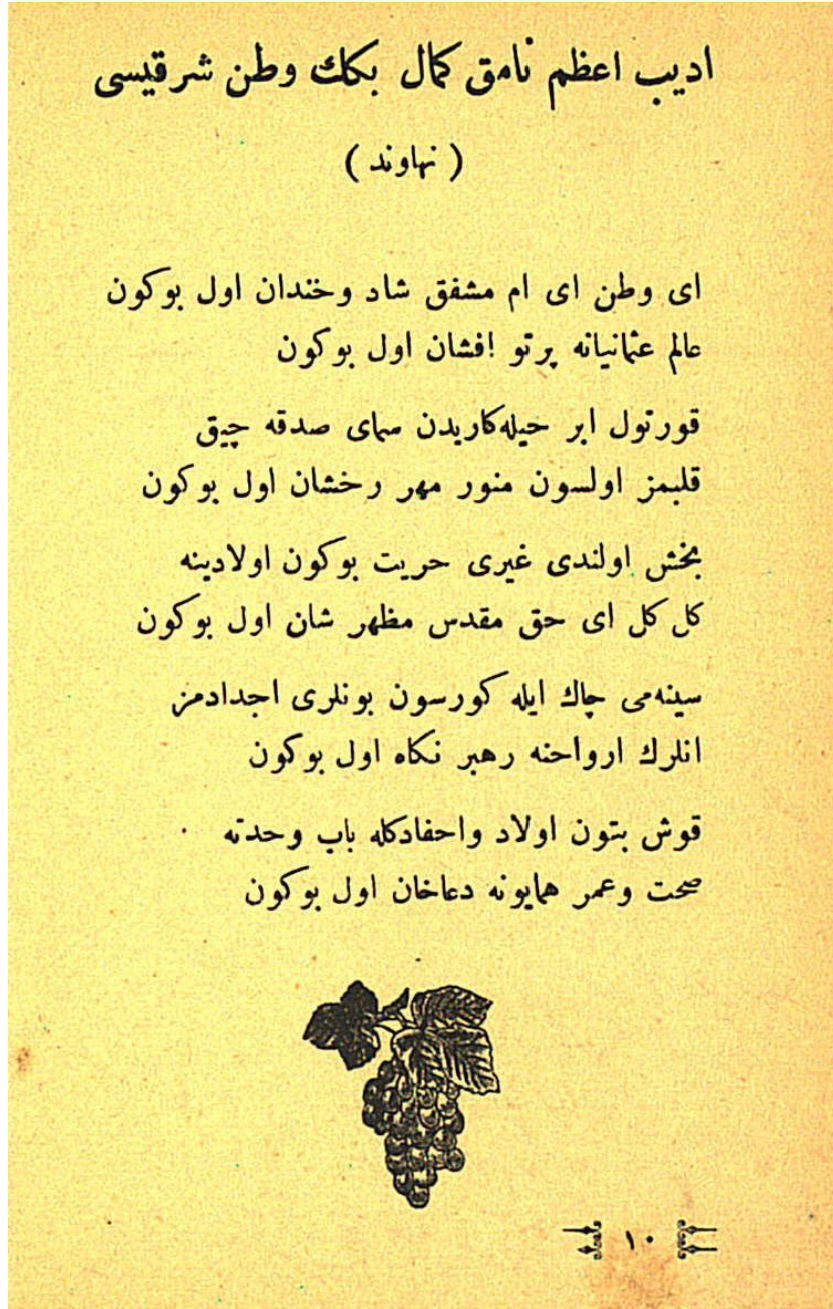 اديب اعظم نامق كمال بكك وطن شرقيسى
( نهاوند )
اى وطن اى ام مشفق شاد وخندان اول بوكون
عالم عثمانيانه پرتو !فشان اول بوكون
قورتول ابر حيله‌كاريدن سماى صدقه چيق
قلبمز اولسون منور مهر رخشان اول بوكون
بخش اولندى غيرى حريت بوكون اولادينه
كل كل اى حق مقدس مظهر شان اول بوكون
سينه‌مى چاك ايله كورسون بونلرى اجدادمز
انلرك ارواحنه رهبر نكاه اول بوكون
قوش بتون اولاد واحفادكله باب وحدته
صحت وعمر همايونه دعاخان اول بوكون
١٠